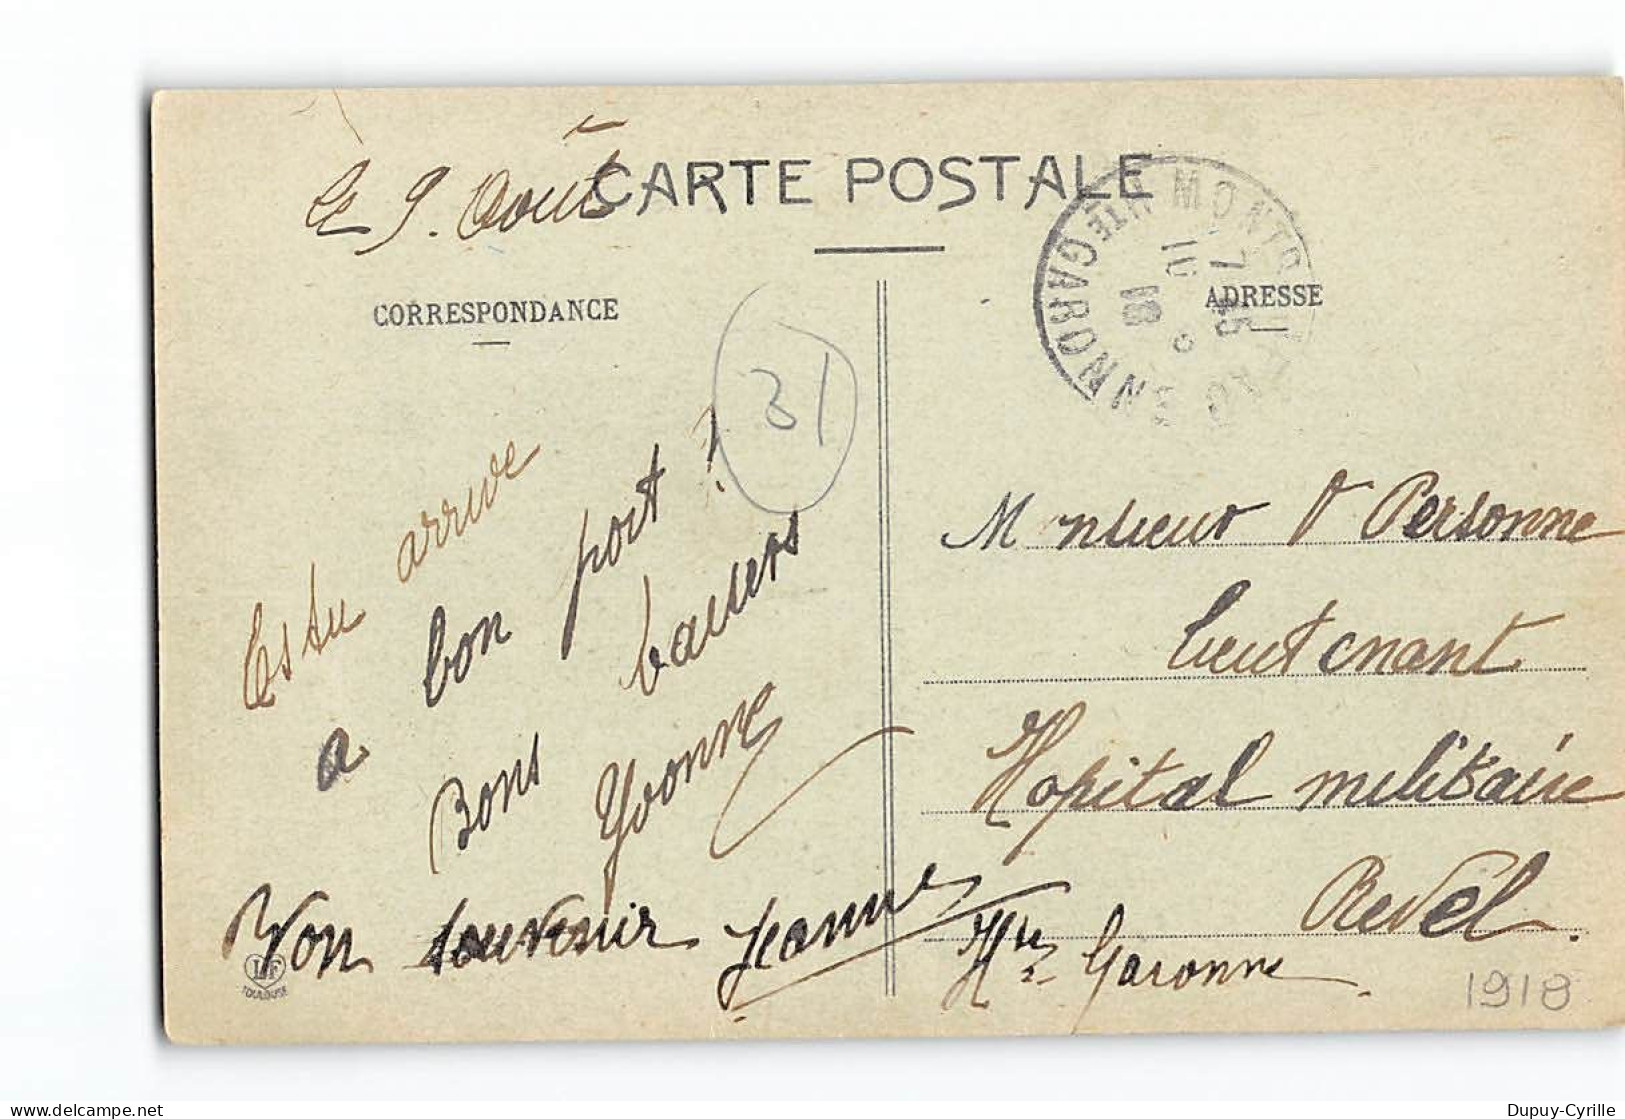 le 9. Août
CARTE POSTALE
CORRESPONDANCE
ADRESSE
31
Es tu arrivé
a bon port ?
Bons baisers
Yvonne
Bon souvenir Jeanne
Monsieur Personne
Lieutenant
Hopital militaire
Revel.
Hte Garonne.
1918
HTE GARONNE
7 45
10 8
18
LF
TOULOUSE
Dupuy-Cyrille